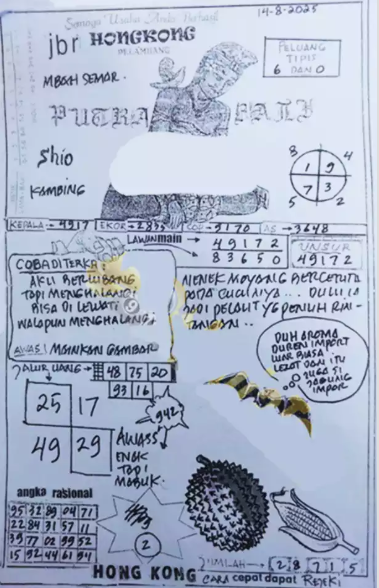 14-8-2025
Semoga Usaha Anda Berhasil
jbr HONGKONG
PELAMBANG
MBAH SEMAR.
PELUANG
TIPIS
6 DAN 0
PUTRA BALI
Shio
KAMBING
8 4
1 9
7 3
5 2
KEPALA = 4917 EKOR = 2835 COL = 9170 AS = 3648
LAWAN main
49172
83650
UNSUR
49172
COBA DITERKA:
AKU BERLUBANG
TAPI MENGHALANG
BISA DI LEWATI
WALAPUN MENGHALANG.
AWAS! MAINKAN GAMBAR
NENEK MOYANG BERCERITA
PADA CUCUNYA... DULU IA
JADI PELAUT YG PENUH RIN-
TANGAN..
DUH AROMA
DUREN IMPORT
LUAR BIASA.
LEZAT DAN ITU
JUGA SI
JAGUNG
IMPOR
JALUR UANG
48 75 20
93 16
942
25 17
49 29
AWASS
ENAK
TAPI
MABUK.
angka rasional
95 32 89 04 71
22 84 31 57 11
39 77 02 99 52
15 92 44 61 94
2
JUMLAH → 2 8 7 1 5
HONG KONG CARA cepat dapat REJEKI